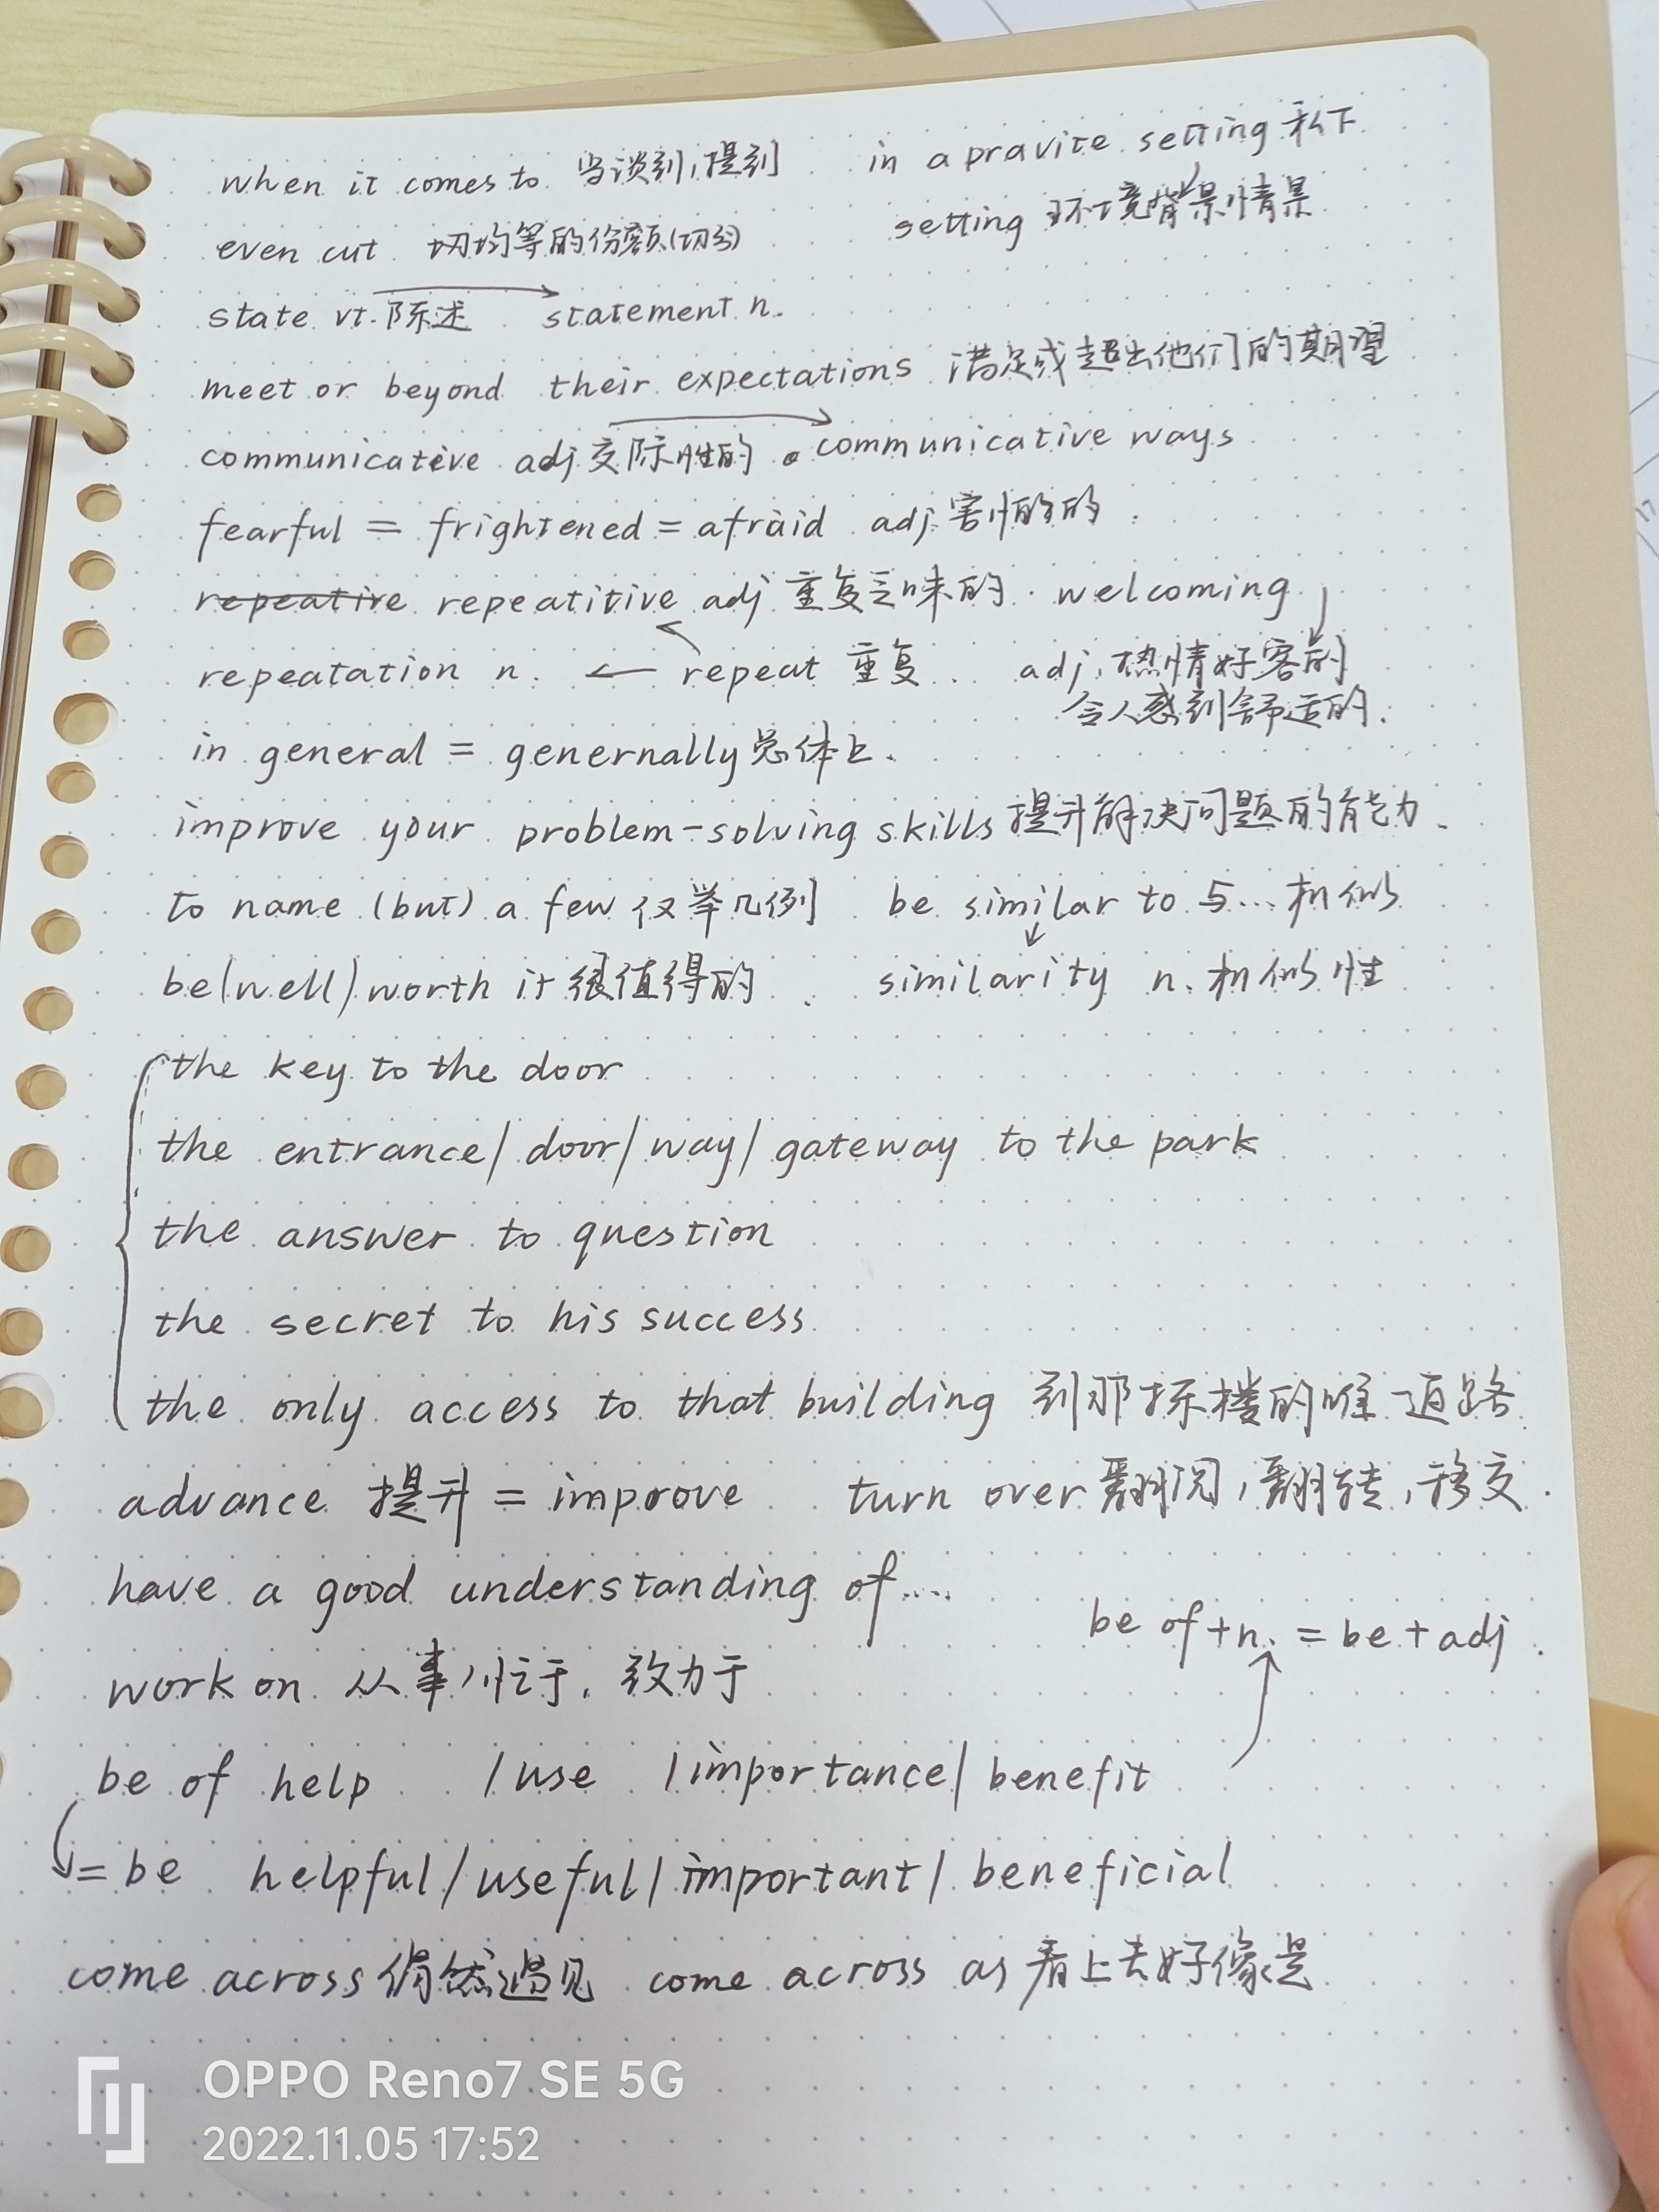 when it comes to 当谈到,提到 in a pravite setting 私下
even cut 切均等的份额(切分) setting 环境背景情景
state vt.陈述 → statement n.
meet or beyond their expectations 满足或超出他们的期望
communicative adj 交际性的 communicative ways
fearful = frightened = afraid adj.害怕的
repeatire repeatitive adj 重复乏味的 welcoming
repeatation n. ← repeat 重复 adj.热情好客的
令人感到舒适的.
in general = genernally 总体上.
improve your problem-solving skills 提升解决问题的能力.
to name (but) a few 仅举几例 be similar to 与...相似
be(well) worth it 很值得的 similarity n.相似性
the key to the door
the entrance/door/way/gateway to the park
the answer to question
the secret to his success
the only access to that building 到那栋楼的唯一道路
advance 提升 = improve turn over 翻阅,翻转,移交.
have a good understanding of....
be of+n. = be+adj.
work on 从事,忙于,致力于
be of help /use /importance/benefit
=be helpful/useful/important/beneficial
come across 偶然遇见 come across as 看上去好像是
OPPO Reno7 SE 5G
2022.11.05 17:52